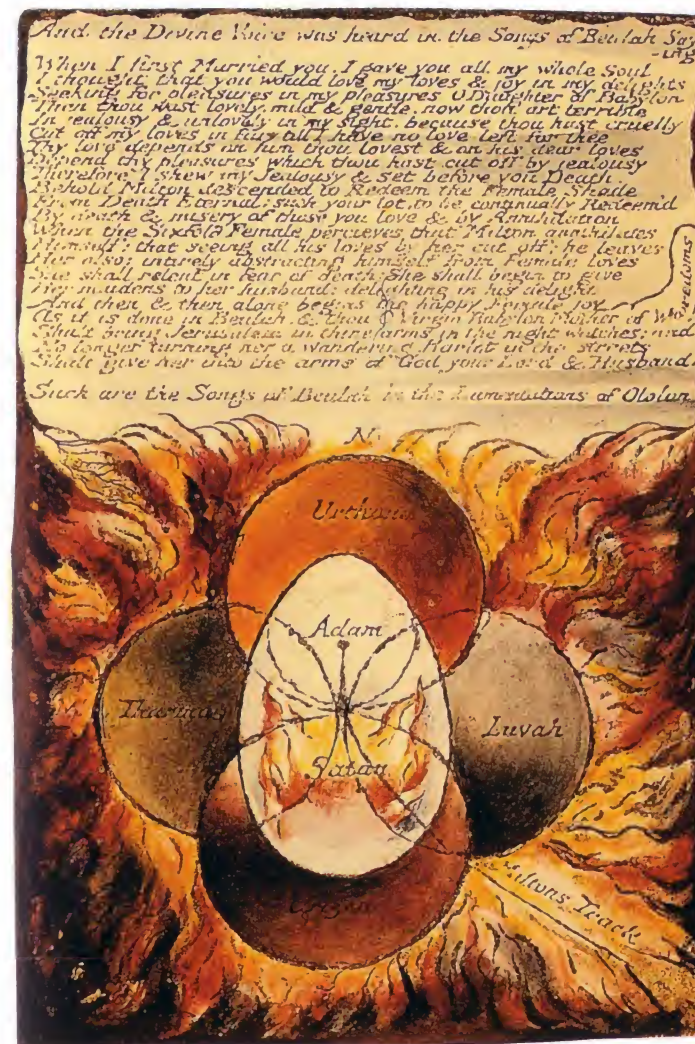 And the Divine Voice was heard in the Songs of Beulah Say
-ing
When I first Married you, I gave you all my whole Soul
I thought that you would love my loves & joy in my delights
Seeking for pleasures in my pleasures O Daughter of Babylon
Then thou wast lovely, mild & gentle, now thou art terrible
In jealousy & unlovely in my sight, because thou hast cruelly
Cut off my loves in fury till I have no love left for thee
Thy love depends on him thou lovest & on his dear loves
Depend thy pleasures which thou hast cut off by jealousy
Therefore I shew my Jealousy & set before you Death
Behold Milton descended to Redeem the Female Shade
From Death Eternal; such your lot, to be continually Redeem'd
By death & misery of those you love & by Annihilation
When the Sixfold Female percieves that Milton annihilates
Himself: that seeing all his loves by her cut off: he leaves
Her also: intirely abstracting himself from Female loves
She shall relent in fear of death: She shall begin to give
Her maidens to her husband: delighting in his delight
And then & then alone begins the happy Female joy
As it is done in Beulah, & thou O Virgin Babylon Mother of Whoredoms
Shalt bring Jerusalem in thine arms in the night watches; and
No longer turning her a wandering Harlot in the streets
Shalt give her into the arms of God your Lord & Husband.
Such are the Songs of Beulah in the Lamentations of Ololon
N
Urthona
Adam
Tharmas
Luvah
Satan
Urizen
Miltons Track